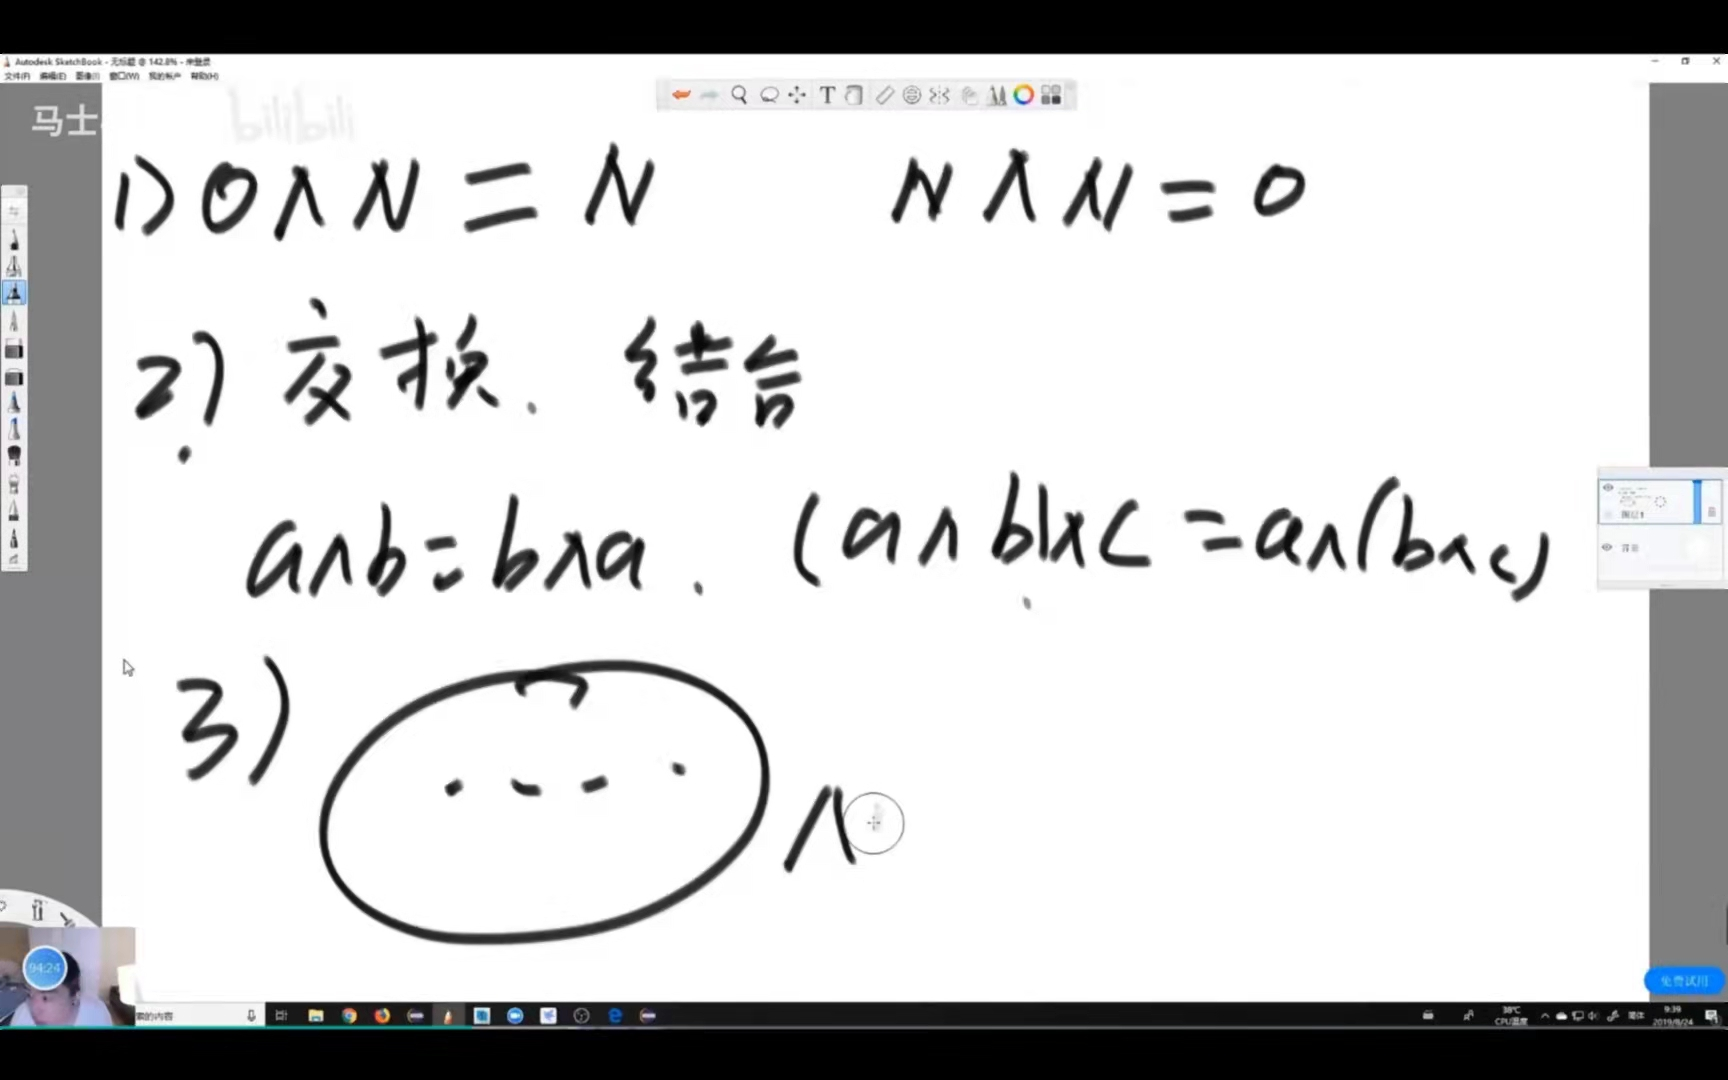 Autodesk SketchBook - 无标题 @ 142.8% - 未登录
文件(F) 编辑(E) 图像(I) 窗口(W) 我的帐户 帮助(H)
马士
bilibili
T
1) 0∧N = N N∧N = 0
2) 交换. 结合
a∧b = b∧a . (a∧b)∧c = a∧(b∧c)
图层1
背景
3) ∧
94:24
免费试用
索的内容
38℃
CPU温度
简体
9:39
2019/8/24